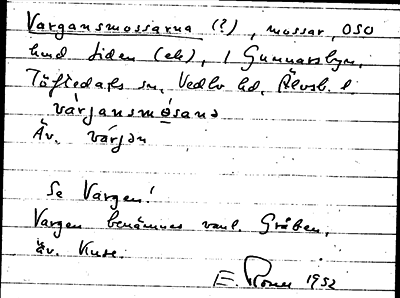 Vargansmossarna (?), mossar, OSO
hmd Liden (ek), i Gunnarsbyn,
Töftedals sn, Vedbo hd, Älvsb. l.
várjansmòsana
Äv. várjan
Se Vargen!
Vargen benämnes vanl. Gråben,
äv. Kuse.
E. 1952